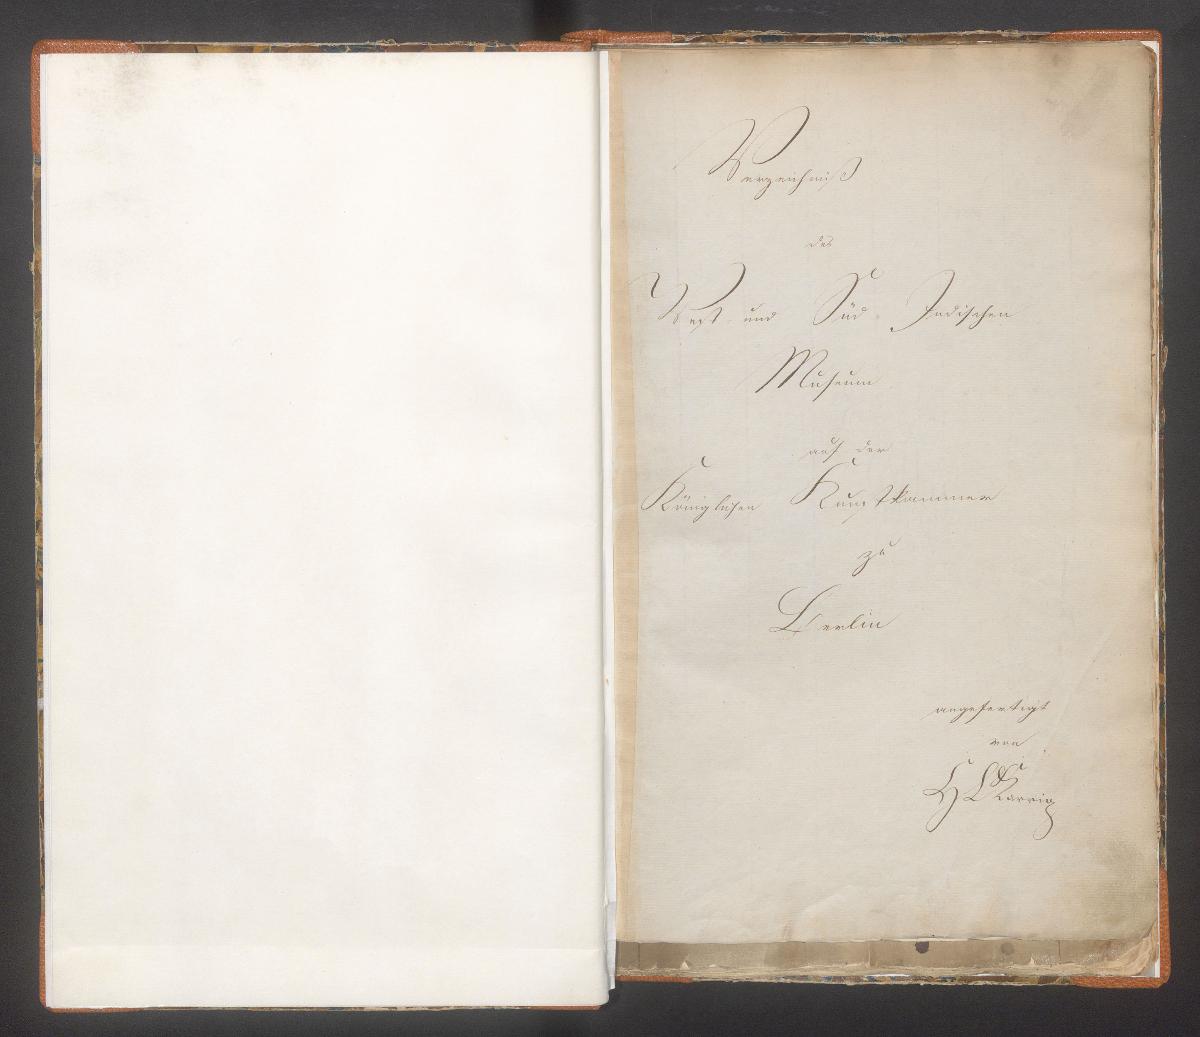 Verzeichniß
des
West- und Süd Indischen
Museum
auf der
Königlichen Kunstkammer
zu
Berlin
angefertigt
von